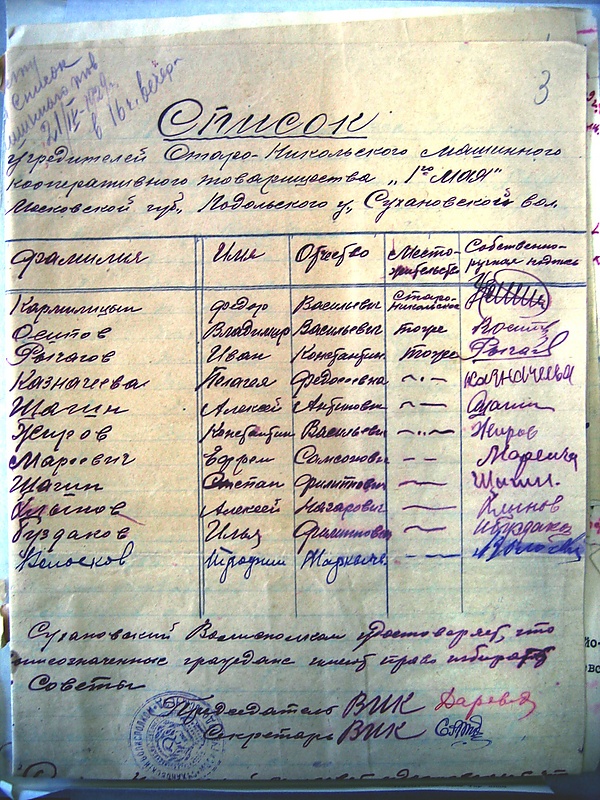 Список
21/IV 1929г.
в 16 ч. вечера
3
Список
учредителей Старо-Никольского Машинного
Кооперативного товарищества „1го Мая"
Московской губ., Подольского у., Сухановской вол.
Фамилия Имя Отчество Место-жительство Собственно-ручная подпись
Кармилицын Федор Васильевич Старо-Никольское
Осипов Владимир Васильевич тоже Восит
Рычагов Иван Константин тоже Рычаг
Казначеева Пелагея Федосеевна -"- Казначеева
Шагин Алексей Антипович — Шагин
Жиров Константин Васильевич -"- Жиров
Мареевич Ефрем Самсонович - - Мареича
Шагин Степан Филиппович — Шагин.
Клынов Алексей Назарович — Клинов
Бузданов Илья Филиппович — Ибуздано
Волосков Маркович - —
Сухановский Волисполком удостоверяет, что
вышеозначенные граждане имеют право избирать
Советы
Председатель ВИК
Секретарь ВИК